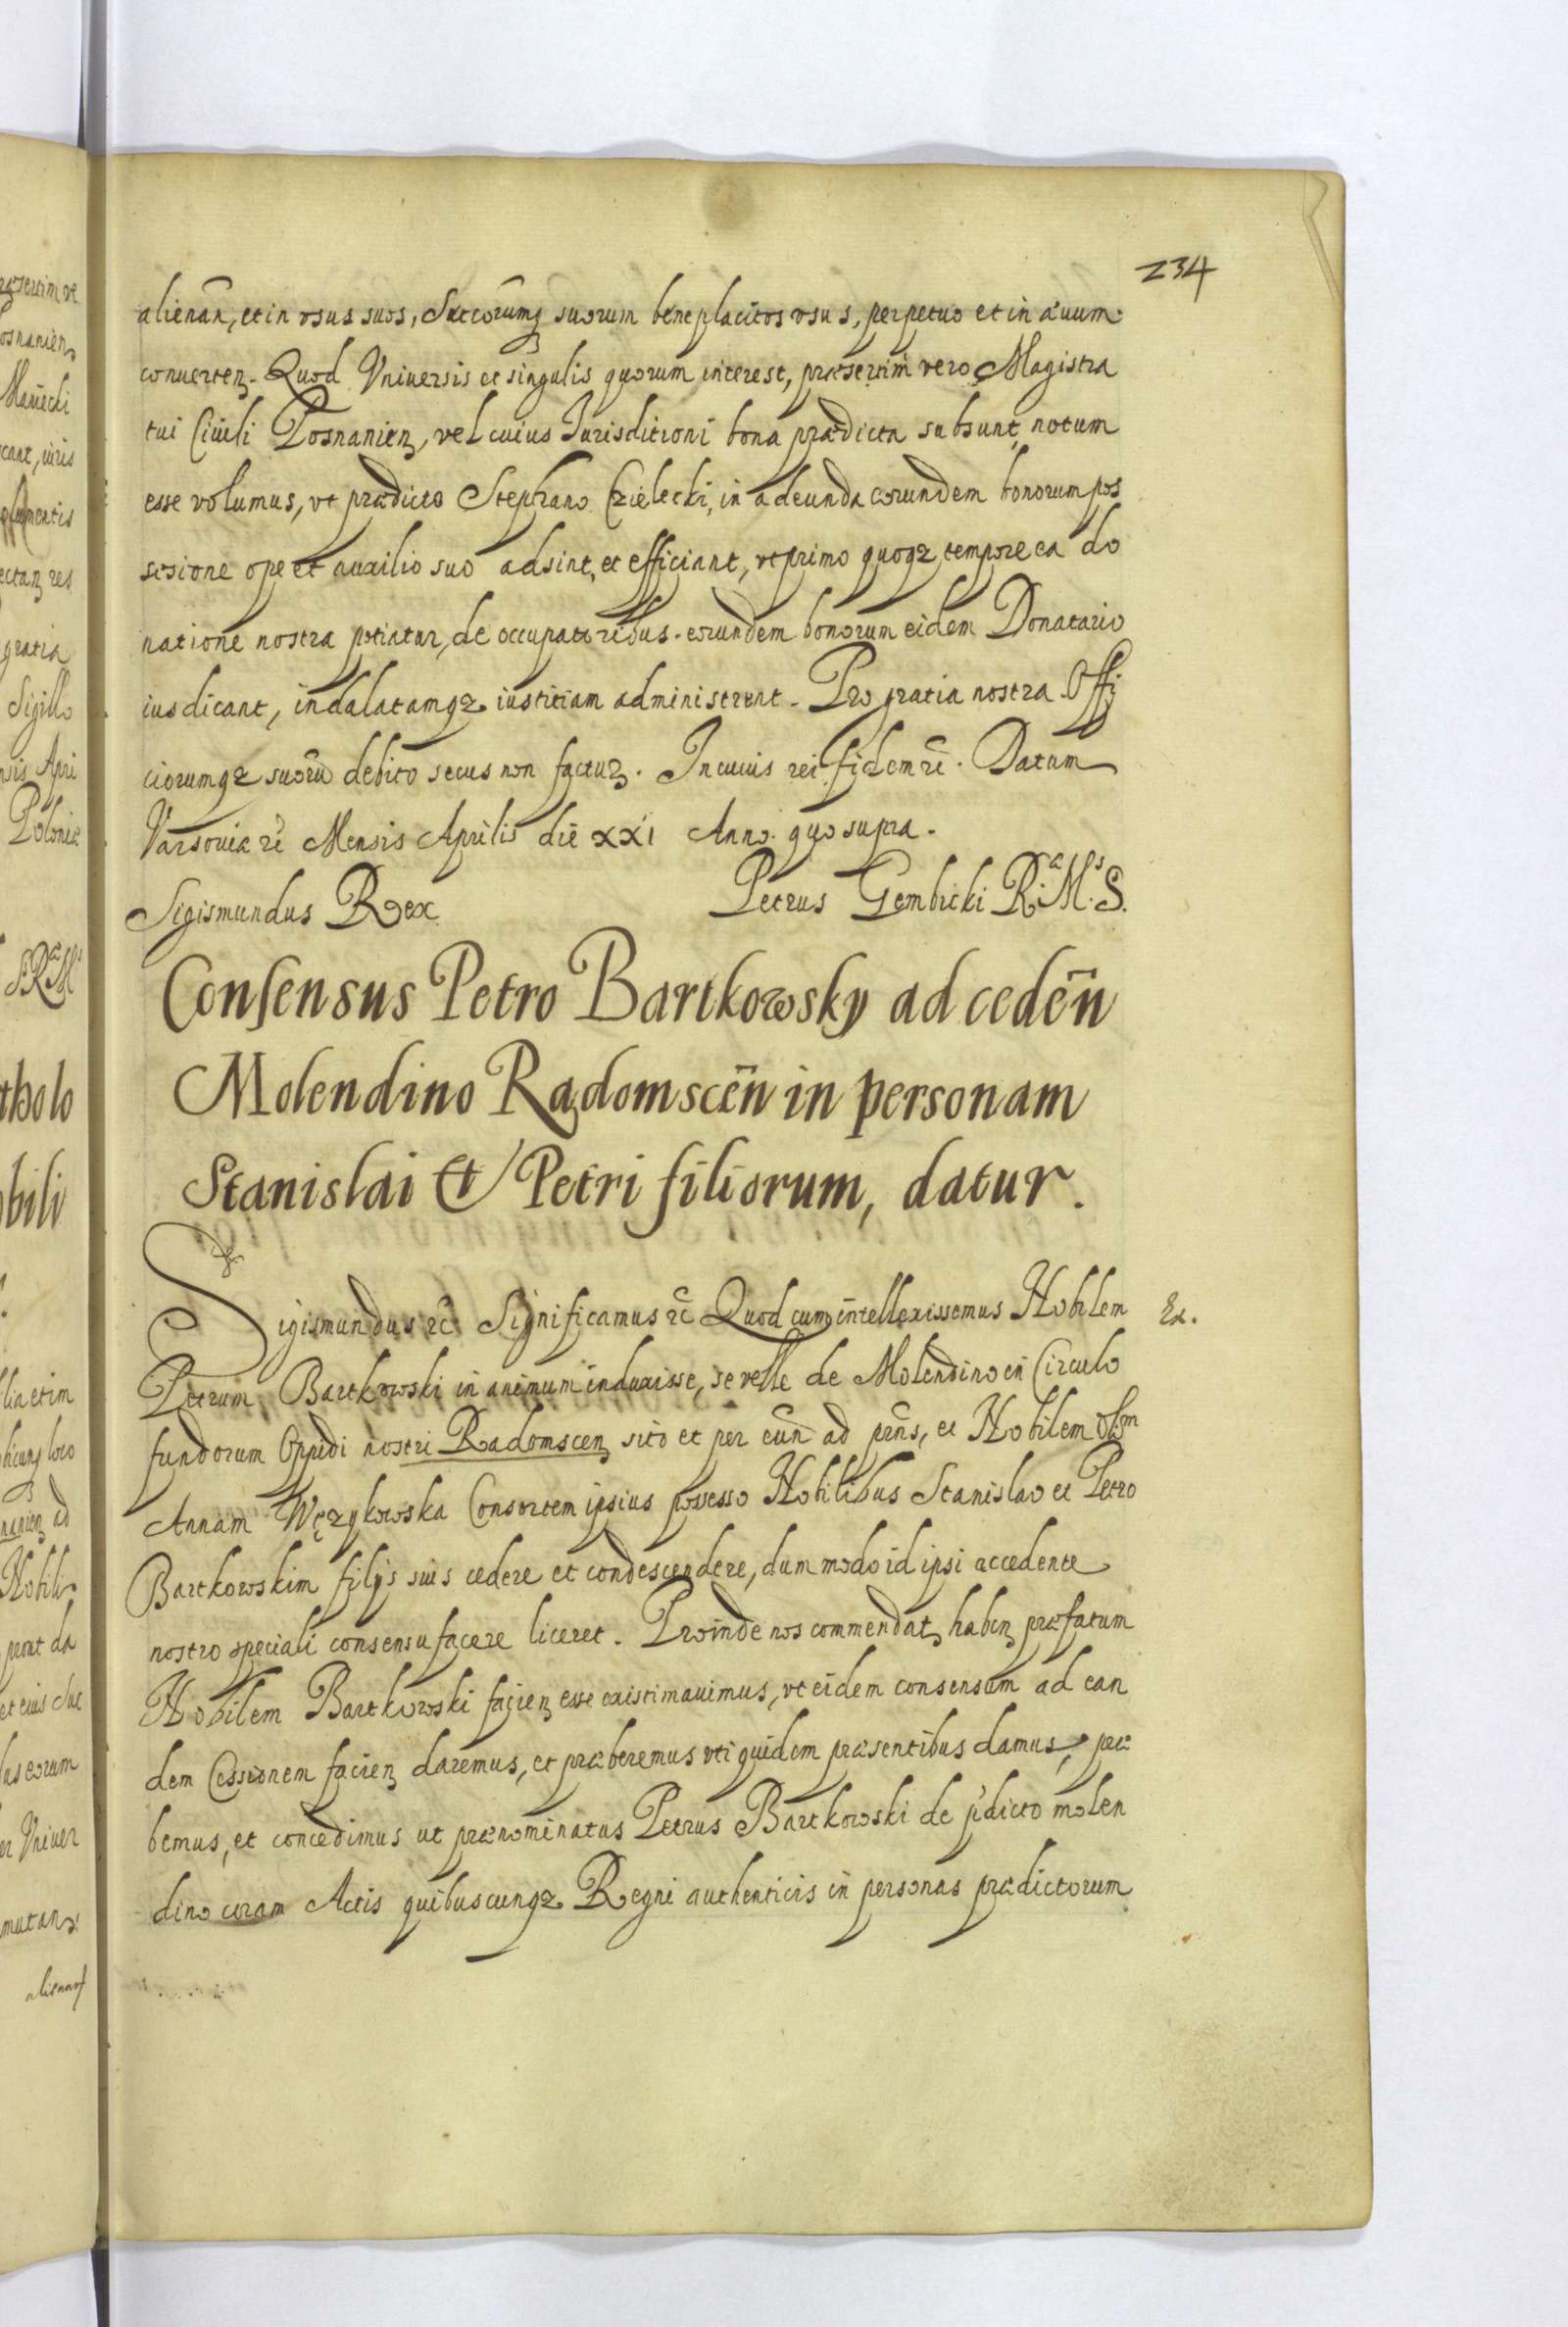 234
alienan̄, et in vsus suos, Succorumq suorum beneplacitos vsus, perpetuo et in æuum
conuerten. Quod Vniuersis et singulis quorum interest, præsertim vero Magistra
tui Ciuili Posnanien, vel cuius Jurisditioni bona prædicta subsunt, notum
esse volumus, vt prædicto Stephano Czielecki, in adeunda eorundem bonorum pos
sesione ope et auxilio suo adsint, et efficiant, vt primo quoqz tempore ea do
natione nostra potiatur, de occupatoribus eorundem bonorum eidem Donatario
ius dicant, indalatamqz iustitiam administrent. Pro gratia nostra Offi
ciorumqz suorū debito secus non factur. In cuius rei fidem ꝛc̄. Datum
Varsouiæ ꝛc̄ Mensis Aprilis die xxi Anno quo supra.
Sigismundus Rex Petrus Gembicki R. M. S.
Consensus Petro Bartkowsky ad cedēn
Molendino Radomscēn in personam
Stanislai et Petri filiorum, datur.
Sigismundus ꝛc̄ Significamus ꝛc̄ Quod cum intellexissemus Nobilem Ex.
Petrum Bartkowski in animum induxisse, se velle de Molendino in Circulo
fundorum Oppidi nostri Radomscen sito et per eūn ad prn̄s, et Nobilem olim
Annam Wężykowska Consortem ipsius possesso Nobilibus Stanislao et Petro
Bartkowskim filijs suis cedere et condescendere, dummodo id ipsi accedente
nostro speciali consensu facere liceret. Proinde nos commendat haben præfatum
Nobilem Bartkowski facien esse existimauimus, vt eidem consensum ad ean
dem Cessionem facien daremus, et præberemus vti quidem præsentibus damus, præ
bemus, et concedimus ut prænominatus Petrus Bartkowski de p'dicto molen
dino coram Actis quibuscunqz Regni authenticis in personas prædictorum